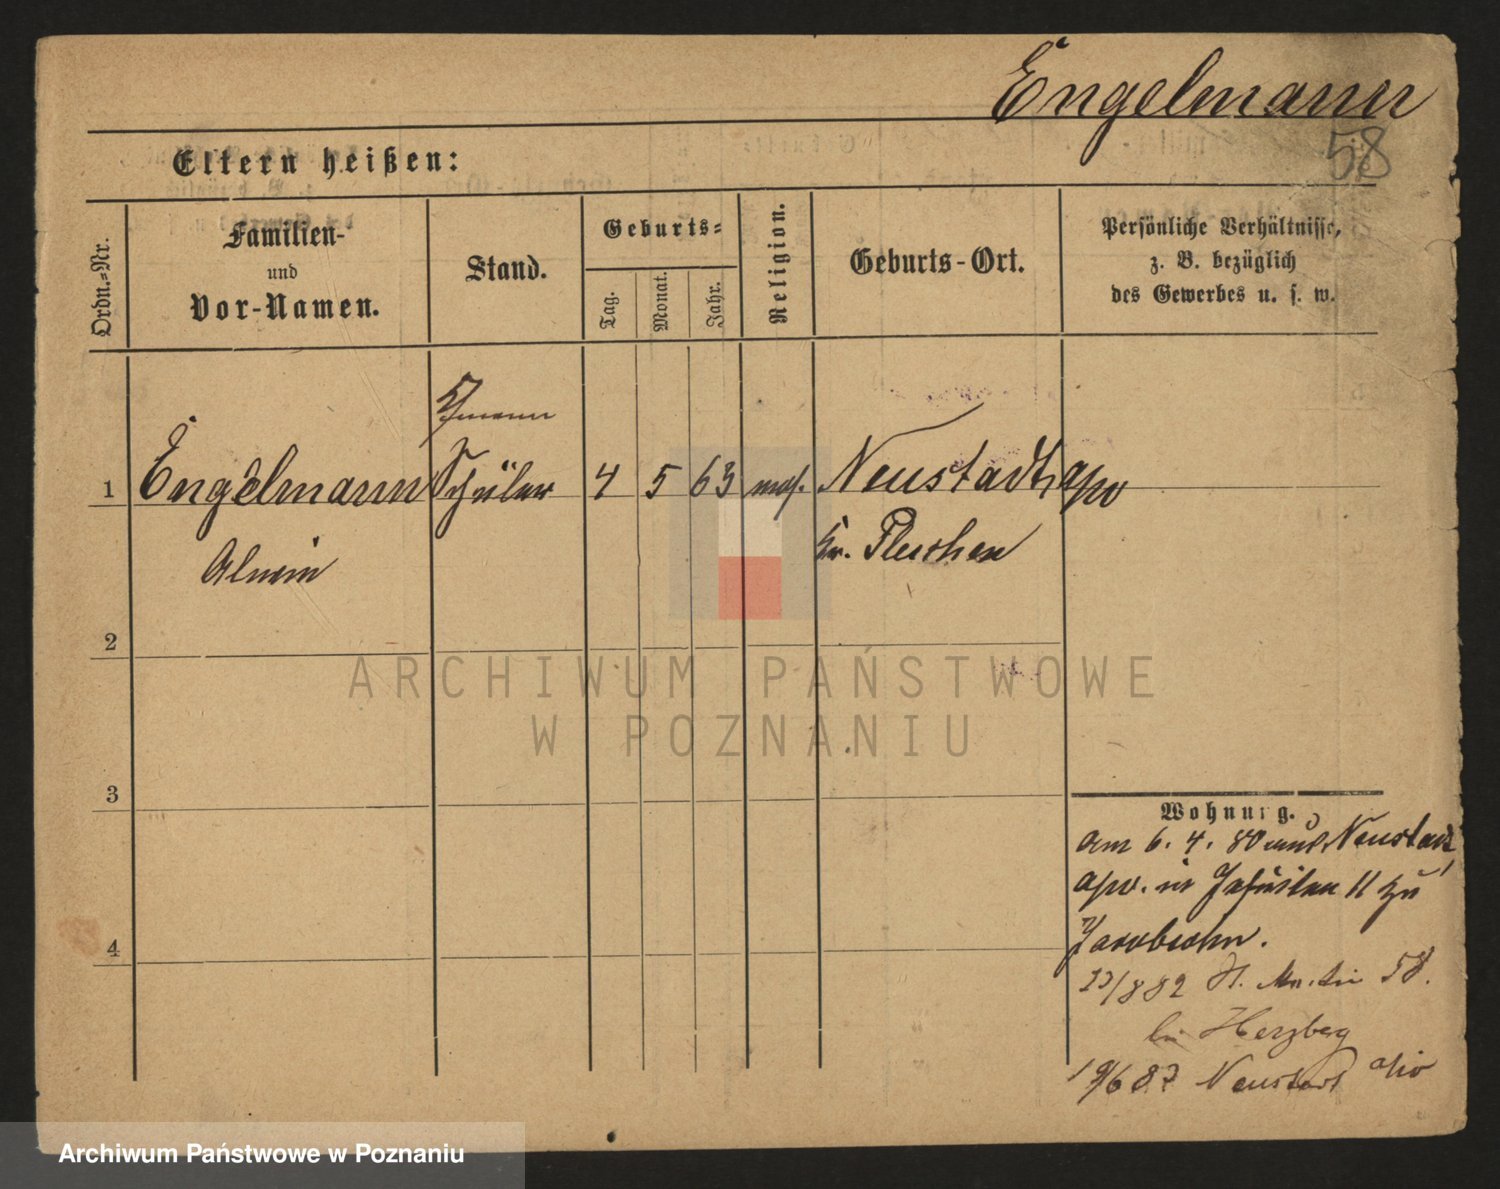 Engelmann
58
Eltern heißen:
Ordn.=Nr.
Familien-
und
Vor-Namen.
Stand.
Geburts=
Tag.
Monat.
Jahr.
Religion.
Geburts-Ort.
Persönliche Verhältnisse,
z. B. bezüglich
des Gewerbes u. s. w.
Kfmann
1 Engelmann Schüler 4 5 63 mos. Neustadt a/w
Alwin Kr. Pleschen
2
ARCHIWUM PAŃSTWOWE
W POZNANIU
3
Wohnung.
am 6. 4. 80 aus Neustadt
a/w. in Jesuiten 11 zu
Jacobsohn.
23/8 82 St. Martin 58.
bei Herzberg
19/6 87 Neustadt a/w
4
Archiwum Państwowe w Poznaniu